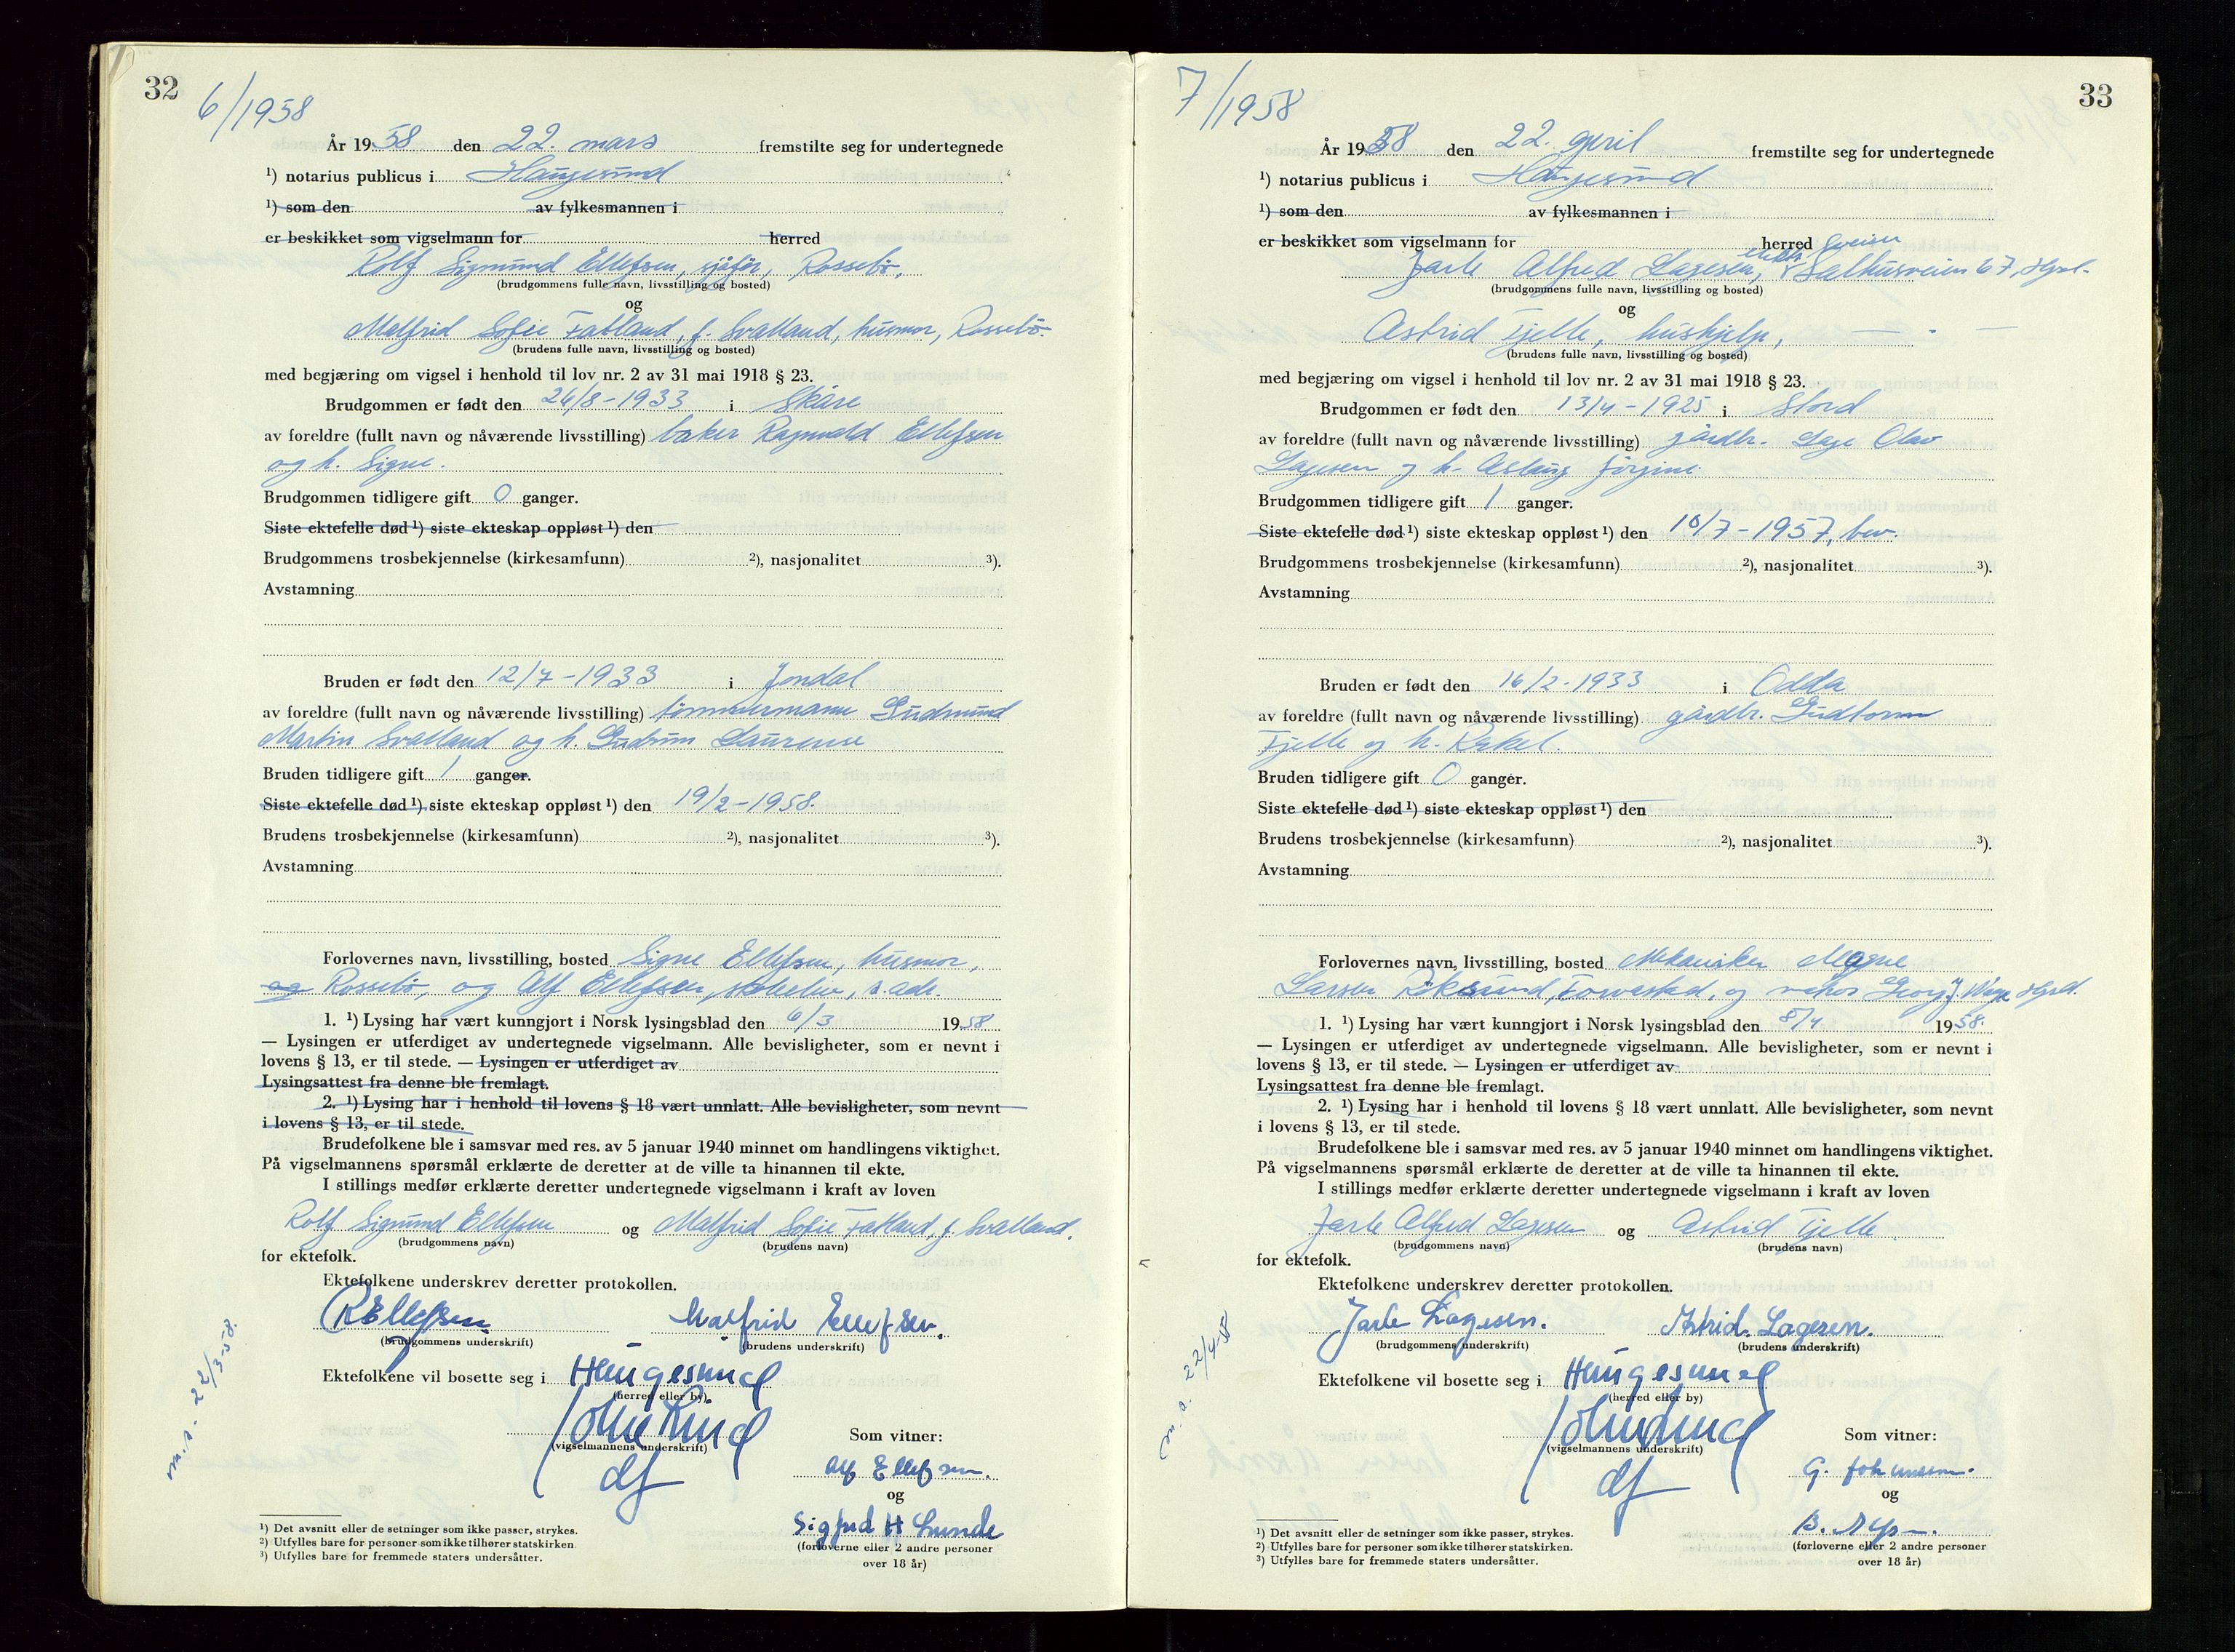 32
6/1958
År 1958 den 22. mars fremstilte seg for undertegnede
¹) notarius publicus i Haugesund
¹) som den av fylkesmannen i
er beskikket som vigselmann for herred
Rolf Sigmund Ellefsen, sjåfør, Rossebø,
(brudgommens fulle navn, livsstilling og bosted)
og
Malfrid Sofie Fatland, f. Svalland, husmor, Rossebø.
(brudens fulle navn, livsstilling og bosted)
med begjæring om vigsel i henhold til lov nr. 2 av 31 mai 1918 § 23.
Brudgommen er født den 26/8-1933 i Skåre
av foreldre (fullt navn og nåværende livsstilling) baker Ragnvald Ellefsen
og h. Signe.
Brudgommen tidligere gift 0 ganger.
Siste ektefelle død ¹) siste ekteskap oppløst ¹) den
Brudgommens trosbekjennelse (kirkesamfunn) ²), nasjonalitet ³).
Avstamning
Bruden er født den 12/7-1933 i Jondal
av foreldre (fullt navn og nåværende livsstilling) tømmermann Gudmund
Martin Svalland og h. Gudrun Laurense
Bruden tidligere gift 1 ganger.
Siste ektefelle død ¹) siste ekteskap oppløst ¹) den 19/2-1958.
Brudens trosbekjennelse (kirkesamfunn) ²), nasjonalitet ³).
Avstamning
Forlovernes navn, livsstilling, bosted Signe Ellefsen, husmor,
og Rossebø, og Alf Ellefsen, s. adr.
1. ¹) Lysing har vært kunngjort i Norsk lysingsblad den 6/3 1958
— Lysingen er utferdiget av undertegnede vigselmann. Alle bevisligheter, som er nevnt i
lovens § 13, er til stede. — Lysingen er utferdiget av
Lysingsattest fra denne ble fremlagt.
2. ¹) Lysing har i henhold til lovens § 18 vært unnlatt. Alle bevisligheter, som nevnt
i lovens § 13, er til stede.
Brudefolkene ble i samsvar med res. av 5 januar 1940 minnet om handlingens viktighet.
På vigselmannens spørsmål erklærte de deretter at de ville ta hinannen til ekte.
I stillings medfør erklærte deretter undertegnede vigselmann i kraft av loven
Rolf Sigmund Ellefsen og Malfrid Sofie Fatland, f. Svalland.
(brudgommens navn) (brudens navn)
for ektefolk.
Ektefolkene underskrev deretter protokollen.
R Ellefsen Malfrid Ellefsen.
(brudgommens underskrift) (brudens underskrift)
Ektefolkene vil bosette seg i Haugesund
(herred eller by)
(vigselmannens underskrift)
df
m.s. 22/3-58.
Som vitner:
Alf Ellefsen.
og
Sigfrid H Lunde
(forloverne eller 2 andre personer
over 18 år)
¹) Det avsnitt eller de setninger som ikke passer, strykes.
²) Utfylles bare for personer som ikke tilhører statskirken.
³) Utfylles bare for fremmede staters undersåtter.
33
7/1958
År 1958 den 22. april fremstilte seg for undertegnede
¹) notarius publicus i Haugesund
¹) som den av fylkesmannen i
er beskikket som vigselmann for herred
Jarle Alfred Lagesen, Salhusveien 67, Hgsd.
(brudgommens fulle navn, livsstilling og bosted)
og
Astrid Tjelle, hushjelp, — " —
(brudens fulle navn, livsstilling og bosted)
med begjæring om vigsel i henhold til lov nr. 2 av 31 mai 1918 § 23.
Brudgommen er født den 13/4-1925 i Stord
av foreldre (fullt navn og nåværende livsstilling) gårdbr. Lage Olav
Lagesen og h. Aslaug Jørgine.
Brudgommen tidligere gift 1 ganger.
Siste ektefelle død ¹) siste ekteskap oppløst ¹) den 10/7-1957, bev.
Brudgommens trosbekjennelse (kirkesamfunn) ²), nasjonalitet ³).
Avstamning
Bruden er født den 16/2-1933 i Odda
av foreldre (fullt navn og nåværende livsstilling) gårdbr. Gudtorm
Tjelle og h. Rakel.
Bruden tidligere gift 0 ganger.
Siste ektefelle død ¹) siste ekteskap oppløst ¹) den
Brudens trosbekjennelse (kirkesamfunn) ²), nasjonalitet ³).
Avstamning
Forlovernes navn, livsstilling, bosted Mekaniker Magne
Larsen Røksund, Torvastad, og Georg Hgsd.
1. ¹) Lysing har vært kunngjort i Norsk lysingsblad den 8/4 1958.
— Lysingen er utferdiget av undertegnede vigselmann. Alle bevisligheter, som er nevnt i
lovens § 13, er til stede. — Lysingen er utferdiget av
Lysingsattest fra denne ble fremlagt.
2. ¹) Lysing har i henhold til lovens § 18 vært unnlatt. Alle bevisligheter, som nevnt
i lovens § 13, er til stede.
Brudefolkene ble i samsvar med res. av 5 januar 1940 minnet om handlingens viktighet.
På vigselmannens spørsmål erklærte de deretter at de ville ta hinannen til ekte.
I stillings medfør erklærte deretter undertegnede vigselmann i kraft av loven
Jarle Alfred Lagesen og Astrid Tjelle
(brudgommens navn) (brudens navn)
for ektefolk.
Ektefolkene underskrev deretter protokollen.
Jarle Lagesen. Astrid Lagesen.
(brudgommens underskrift) (brudens underskrift)
Ektefolkene vil bosette seg i Haugesund
(herred eller by)
(vigselmannens underskrift)
df
m.s. 22/4-58
Som vitner:
G. Johannesen.
og
B.
(forloverne eller 2 andre personer
over 18 år)
¹) Det avsnitt eller de setninger som ikke passer, strykes.
²) Utfylles bare for personer som ikke tilhører statskirken.
³) Utfylles bare for fremmede staters undersåtter.